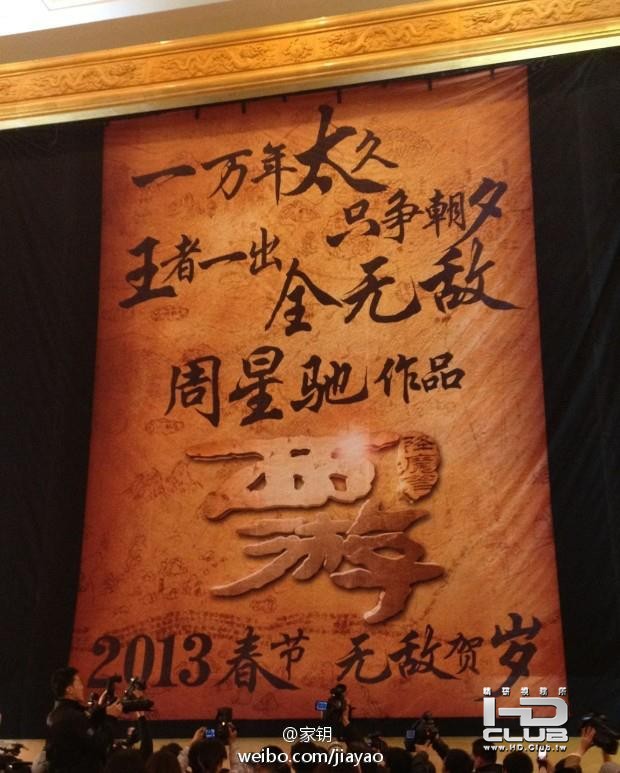 一万年太久
只争朝夕
王者一出
全无敌
周星驰作品
西游
降魔篇
2013春节 无敌贺岁
@家钥
weibo.com/jiayao
精研視務所
HD CLUB
www.HD.Club.tw